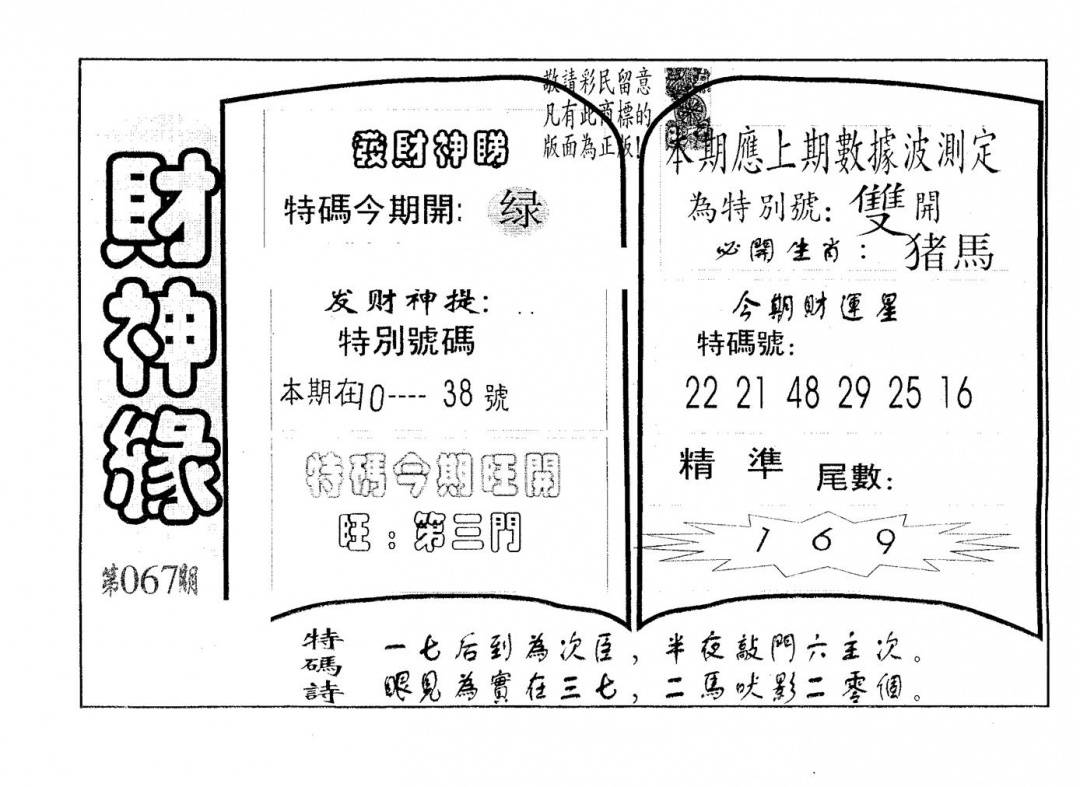 財神緣
第067期
敬請彩民留意
凡有此商標的
版面為正版!
發財神賜
特碼今期開: 绿
发财神提:
特別號碼
本期在10---- 38 號
特碼今期旺開
旺:第三門
本期應上期數據波測定
為特別號: 雙開
必開生肖: 猪馬
今期財運星
特碼號:
22 21 48 29 25 16
精準 尾數:
1 6 9
特碼詩
一七后到為次臣,半夜敲門六主次。
眼見為實在三七,二馬吠影二零個。